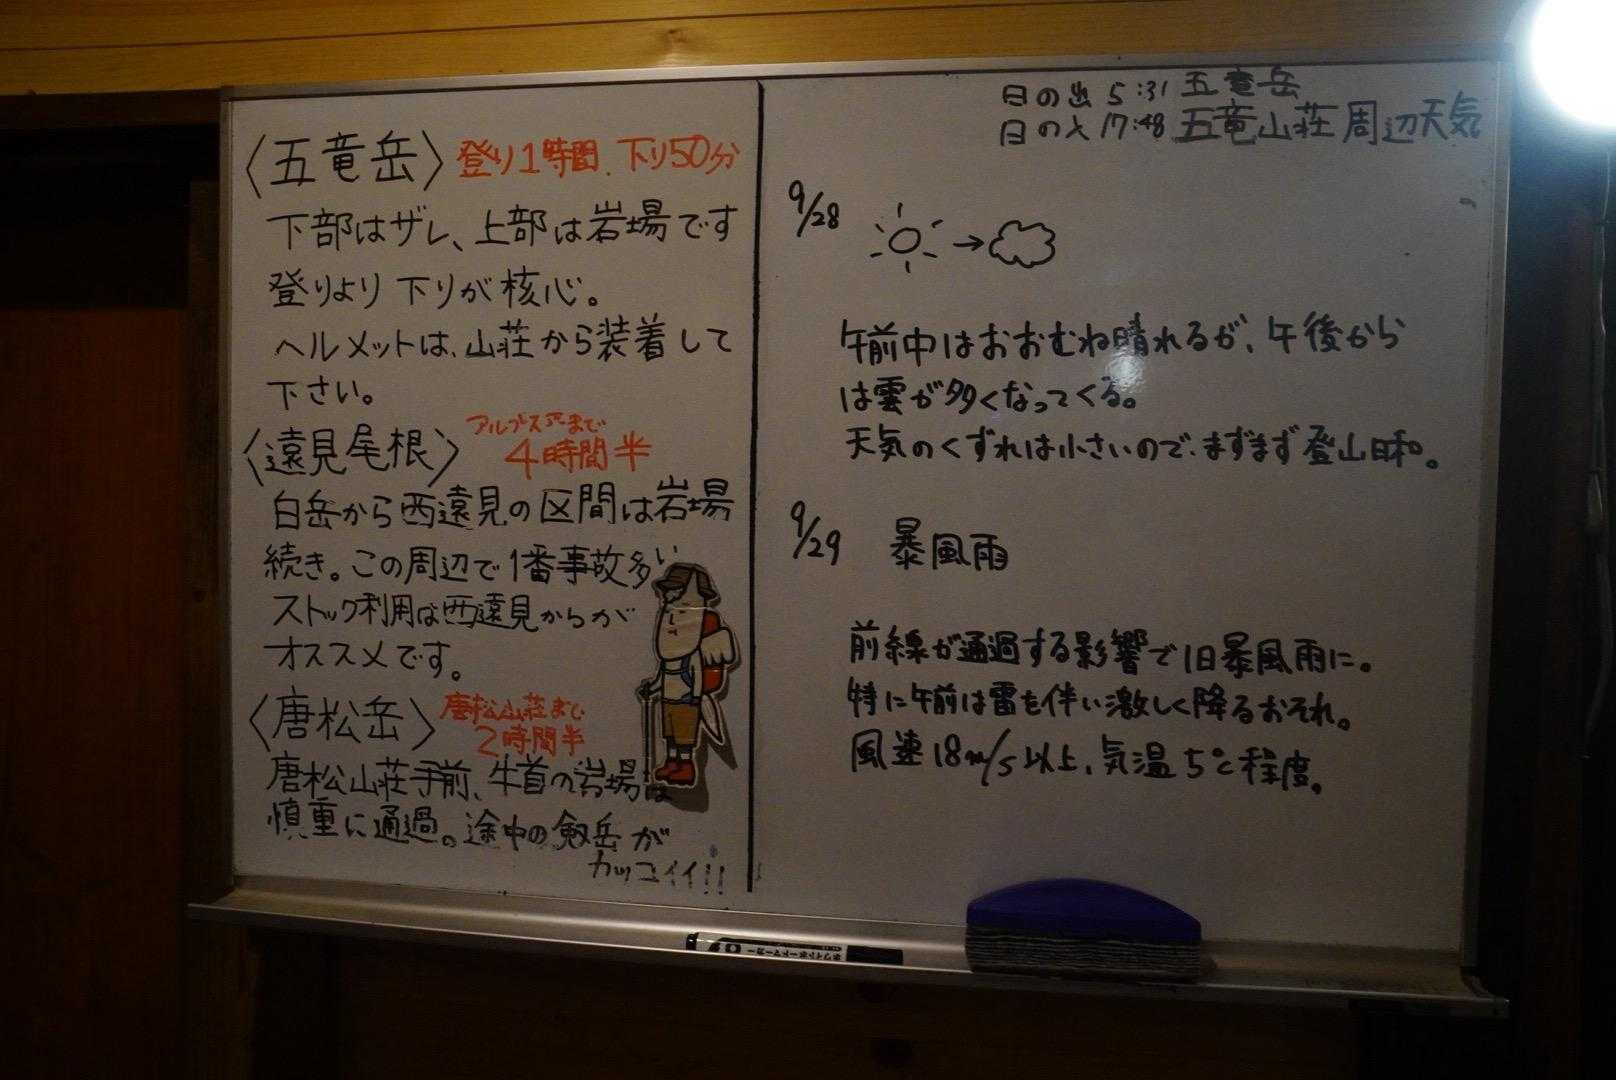 〈五竜岳〉登り1時間.下り50分
下部はザレ、上部は岩場です
登りより下りが核心。
ヘルメットは、山荘から装着して
下さい。
〈遠見尾根〉アルプス平まで
4時間半
白岳から西遠見の区間は岩場
続き。この周辺で1番事故多い
ストック利用は西遠見からが
オススメです。
〈唐松岳〉唐松山荘まで
2時間半
唐松山荘手前、牛首の岩場は
慎重に通過。途中の剱岳が
カッコイイ!!
日の出 5:31 五竜岳
日の入 17:48 五竜山荘 周辺天気
9/28
→
午前中はおおむね晴れるが、午後から
は雲が多くなってくる。
天気のくずれは小さいので、まずまず登山日和。
9/29 暴風雨
前線が通過する影響で1日暴風雨に。
特に午前は雷も伴い激しく降るおそれ。
風速18m/s以上、気温5℃程度。
ホワイトボードマーカー